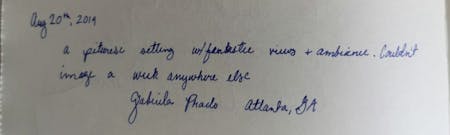 Aug 20th, 2019
a picturesc setting w/fantastic views + ambiance. Couldn't
image a week anywhere else
Gabriela Prado Atlanta, GA